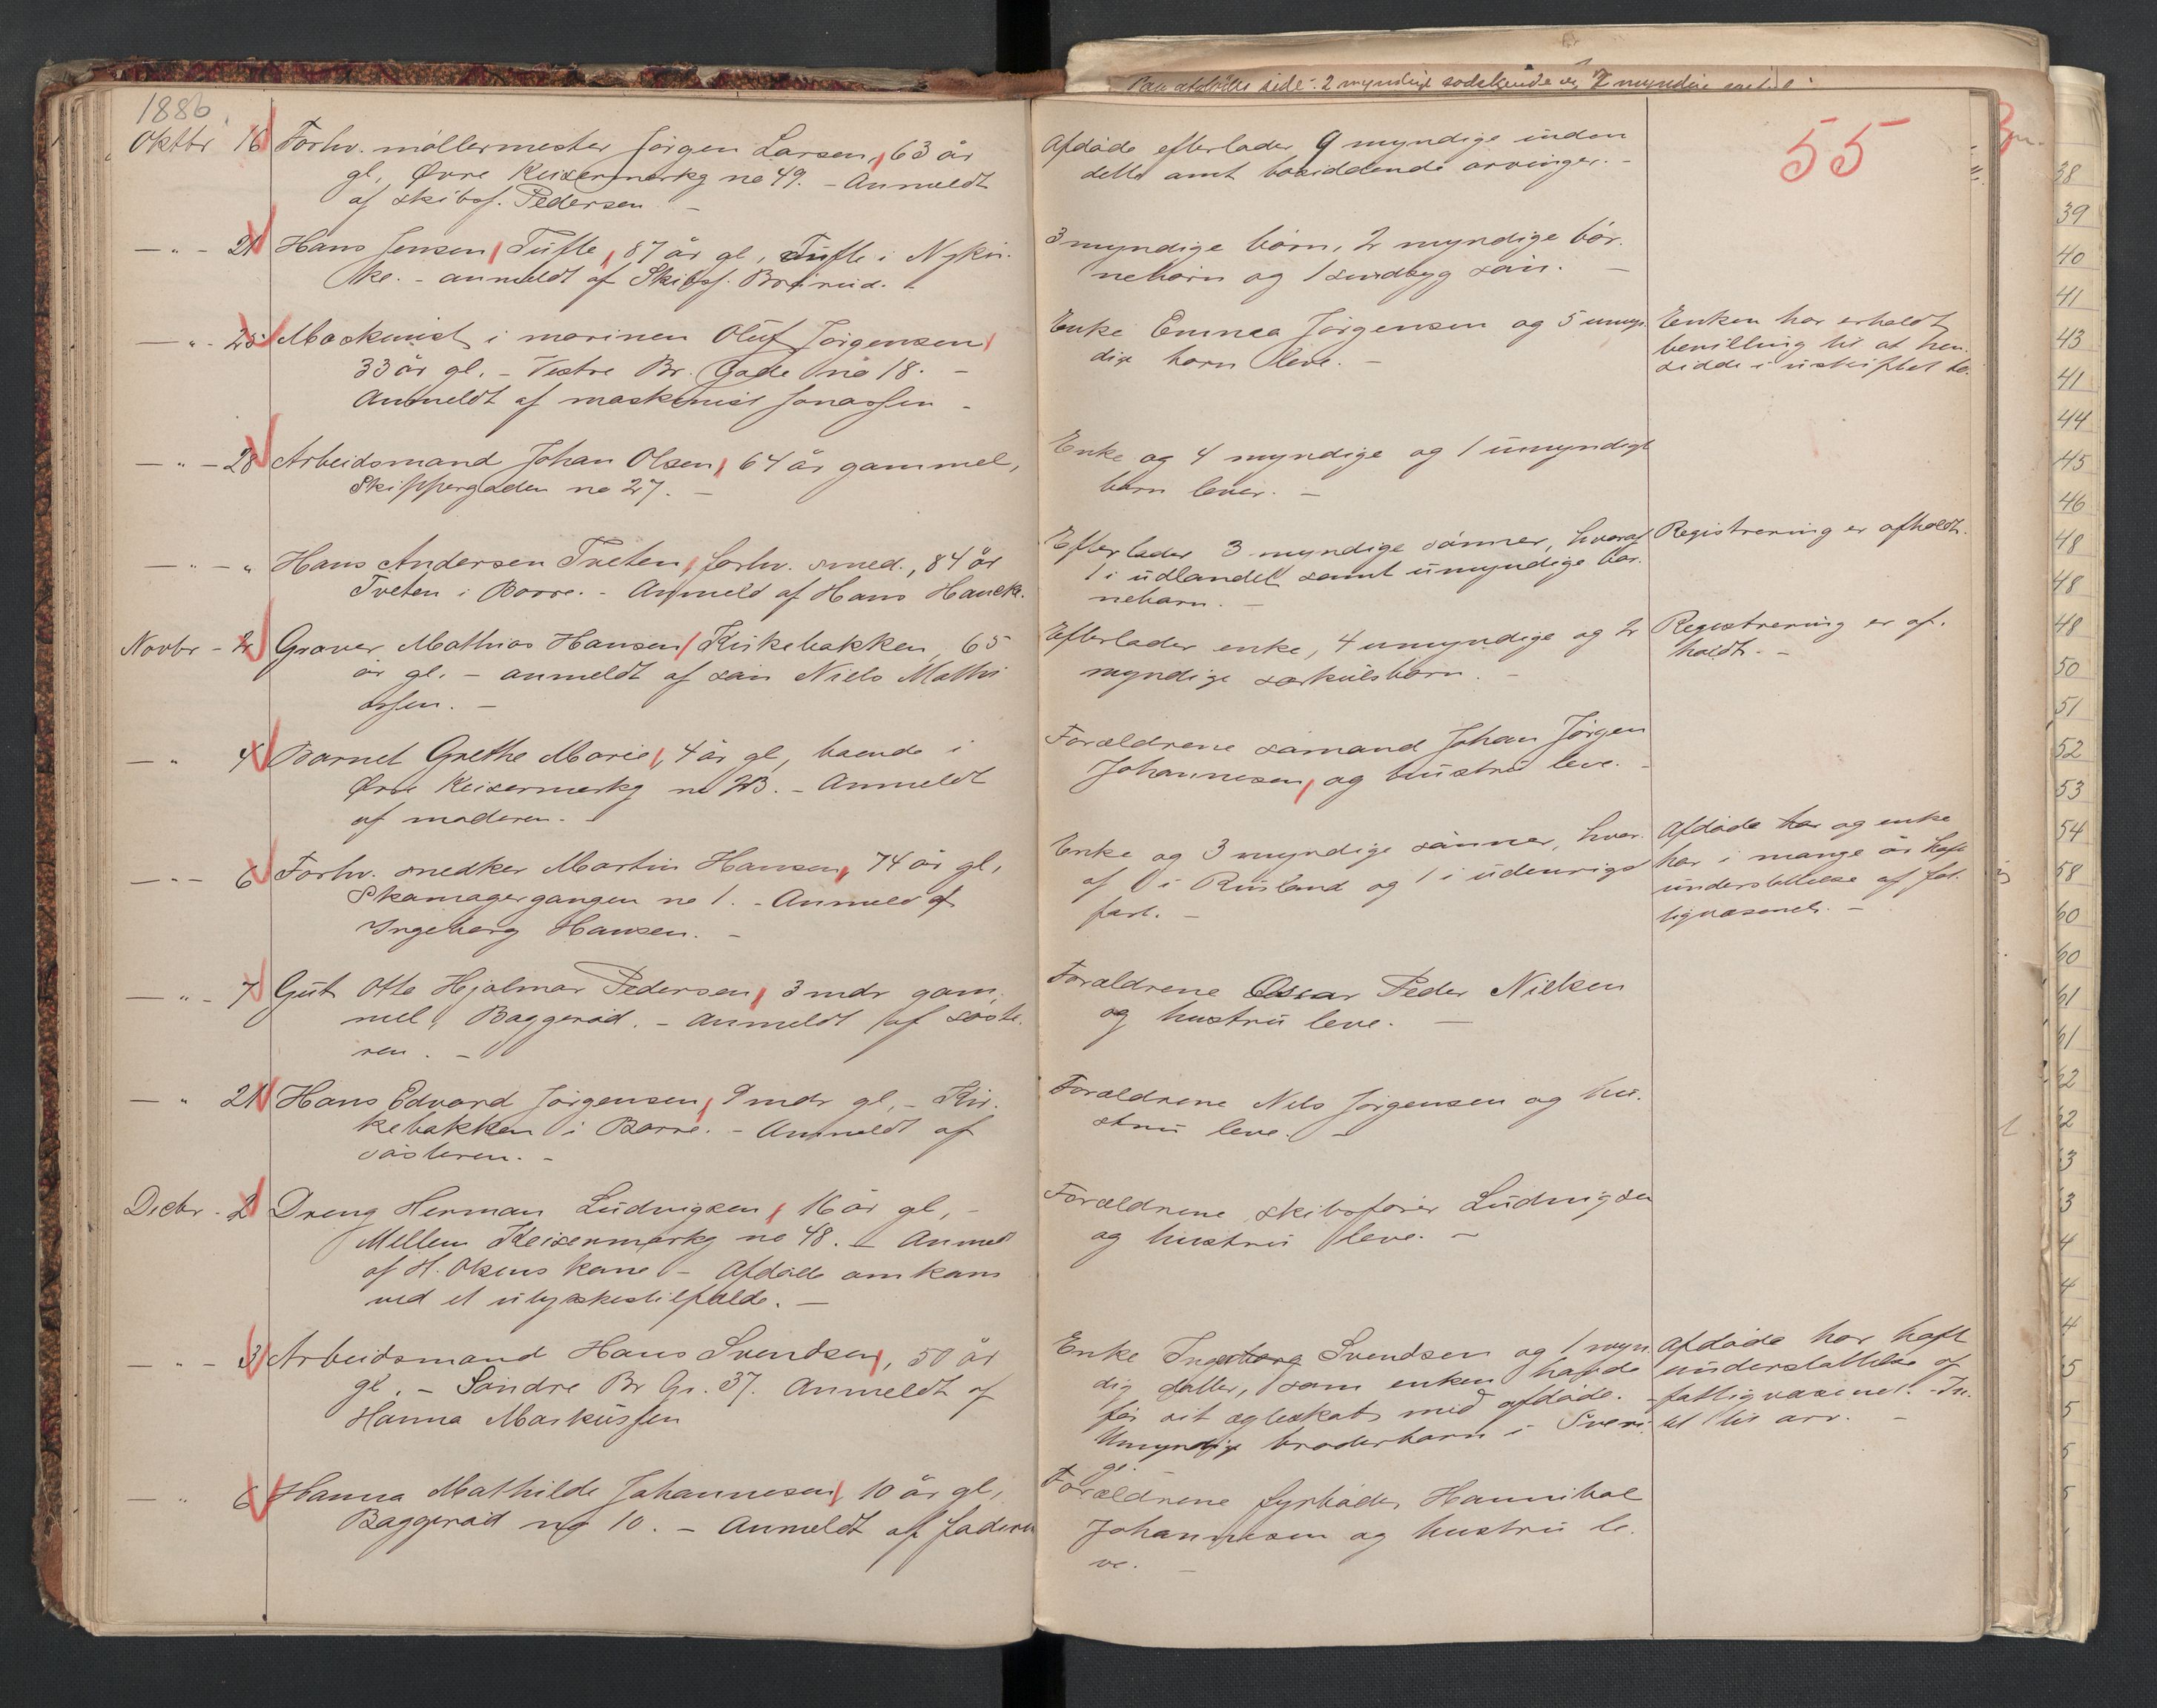 1886
Oktbr 16 Forhv. møllermester Jørgen Larsen, 63 år
gl, Øvre Keisermarkg no 49. - Anmeldt
af skibsf. Pedersen -
Afdøde efterlader 9 myndige inden
dette amt bosiddende arvinger. -
55
— " - 21 Hans Jensen Tufte, 87 år gl, Tufte i Nykir-
ke. - anmeldt af Skibsf.
3 myndige børn, 2 myndige bør-
nebørn og 1 sindsyg søn. -
— " - 25 Maskinist i marinen Oluf Jørgensen
33 år gl. - Vestre Br. Gade no 18. -
Anmeldt af maskinist Jonassen -
Enke Emnea Jörgensen og 5 umyn-
dige børn leve. -
Enken har erholdt
bevilling til at hen-
sidde i uskiftet bo.
— " - 28 Arbeidsmand Johan Olsen, 64 år gammel,
Skippergaden no 27. -
Enke og 4 myndige og 1 umyndigt
barn lever. -
— " - " Hans Andersen Tveten, forhv. smed., 84 år
Tveten i Borre. - Anmeld af Hans Hanek.
Efterlader 3 myndige sønner, hvoraf
1 i udlandet samt umyndige bør-
nebørn. -
Registrering er afholdt.
Novbr - 2 Graver Mathias Hansen Kirkebakken, 65
år gl. - anmeldt af søn Niels Mathi
assen. -
Efterlader enke, 4 umyndige og 2
myndige særkulsbørn. -
Registrering er af-
holdt. -
— " 4 Barnet Grethe Marie, 4 år gl, boende i
Øvre Keisermarkg no 23. - Anmeldt
af moderen. -
Forældrene sømand Johan Jörgen
Johannesen, og hustru leve. -
— " - 6 Forhv. snedker Martin Hansen, 74 år gl,
Skomagergangen no 1. - Anmeld af
Ingeborg Hansen. -
Enke og 3 myndige sønner, hvor-
af 1 i Rusland og 1 i udenrigs
fart. -
Afdøde har og enke
har i mange år haft
understøttelse af fat-
tigvæsenet. -
— " - 7 Gut Otto Hjalmar Pedersen, 3 mdr gam-
mel, Baggerød. - Anmeldt af søste-
ren. -
Forældrene Oscar Peder Nielsen
og hustru leve. -
— " 21 Hans Edvard Jørgensen, 9 mdr gl, - Kir-
kebakken i Borre. - Anmeldt af
søsteren. -
Forældrene Nils Jørgensen og hu-
stru leve. -
Decbr - 2 Dreng Herman Ludvigsen, 16 år gl, -
Mellem Keisermarkg no 48. - Anmed
af H. Olsens kone - Afdøde omkom
ved et ulykkestilfælde. -
Forældrene skibsfører Ludvigsen
og hustru leve. -
— " - 3 Arbeidsmand Hans Svendsen, 50 år
gl. - Søndre Br Ga. 37. Anmeldt af
Hanna Markussen
Enke Ingeborg Svendsen og 1 myn-
dig datter, som enken havde
før sit ægteskab med afdøde. -
Umyndige broderbørn i Sveri-
ge.
Afdøde har haft
understøttelse af
fattigvæsenet. - In-
tet til arv. -
— " 6 Hanna Mathilde Johannesen, 10 år gl,
Baggerød no 10. - Anmeldt af faderen
Forældrene fyrbøder Hannibal
Johannesen og hustru le-
ve. -
38
39
40
41
43
41
44
45
46
48
48
48
50
51
52
53
54
58
60
60
61
61